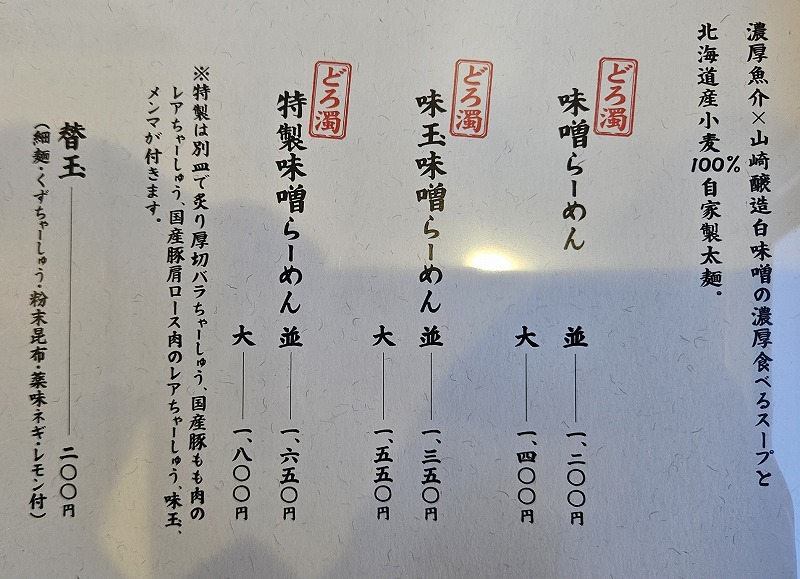 濃厚魚介×山崎醸造白味噌の濃厚食べるスープと
北海道産小麦100%自家製太麺。
どろ濁
味噌らーめん
並 一、二〇〇円
大 一、四〇〇円
どろ濁
味玉味噌らーめん
並 一、三五〇円
大 一、五五〇円
どろ濁
特製味噌らーめん
並 一、六五〇円
大 一、八〇〇円
※特製は別皿で炙り厚切バラちゃーしゅう、国産豚もも肉の
レアちゃーしゅう、国産豚肩ロース肉のレアちゃーしゅう、味玉、
メンマが付きます。
替玉 二〇〇円
(細麺・くずちゃーしゅう・粉末昆布・薬味ネギ・レモン付)